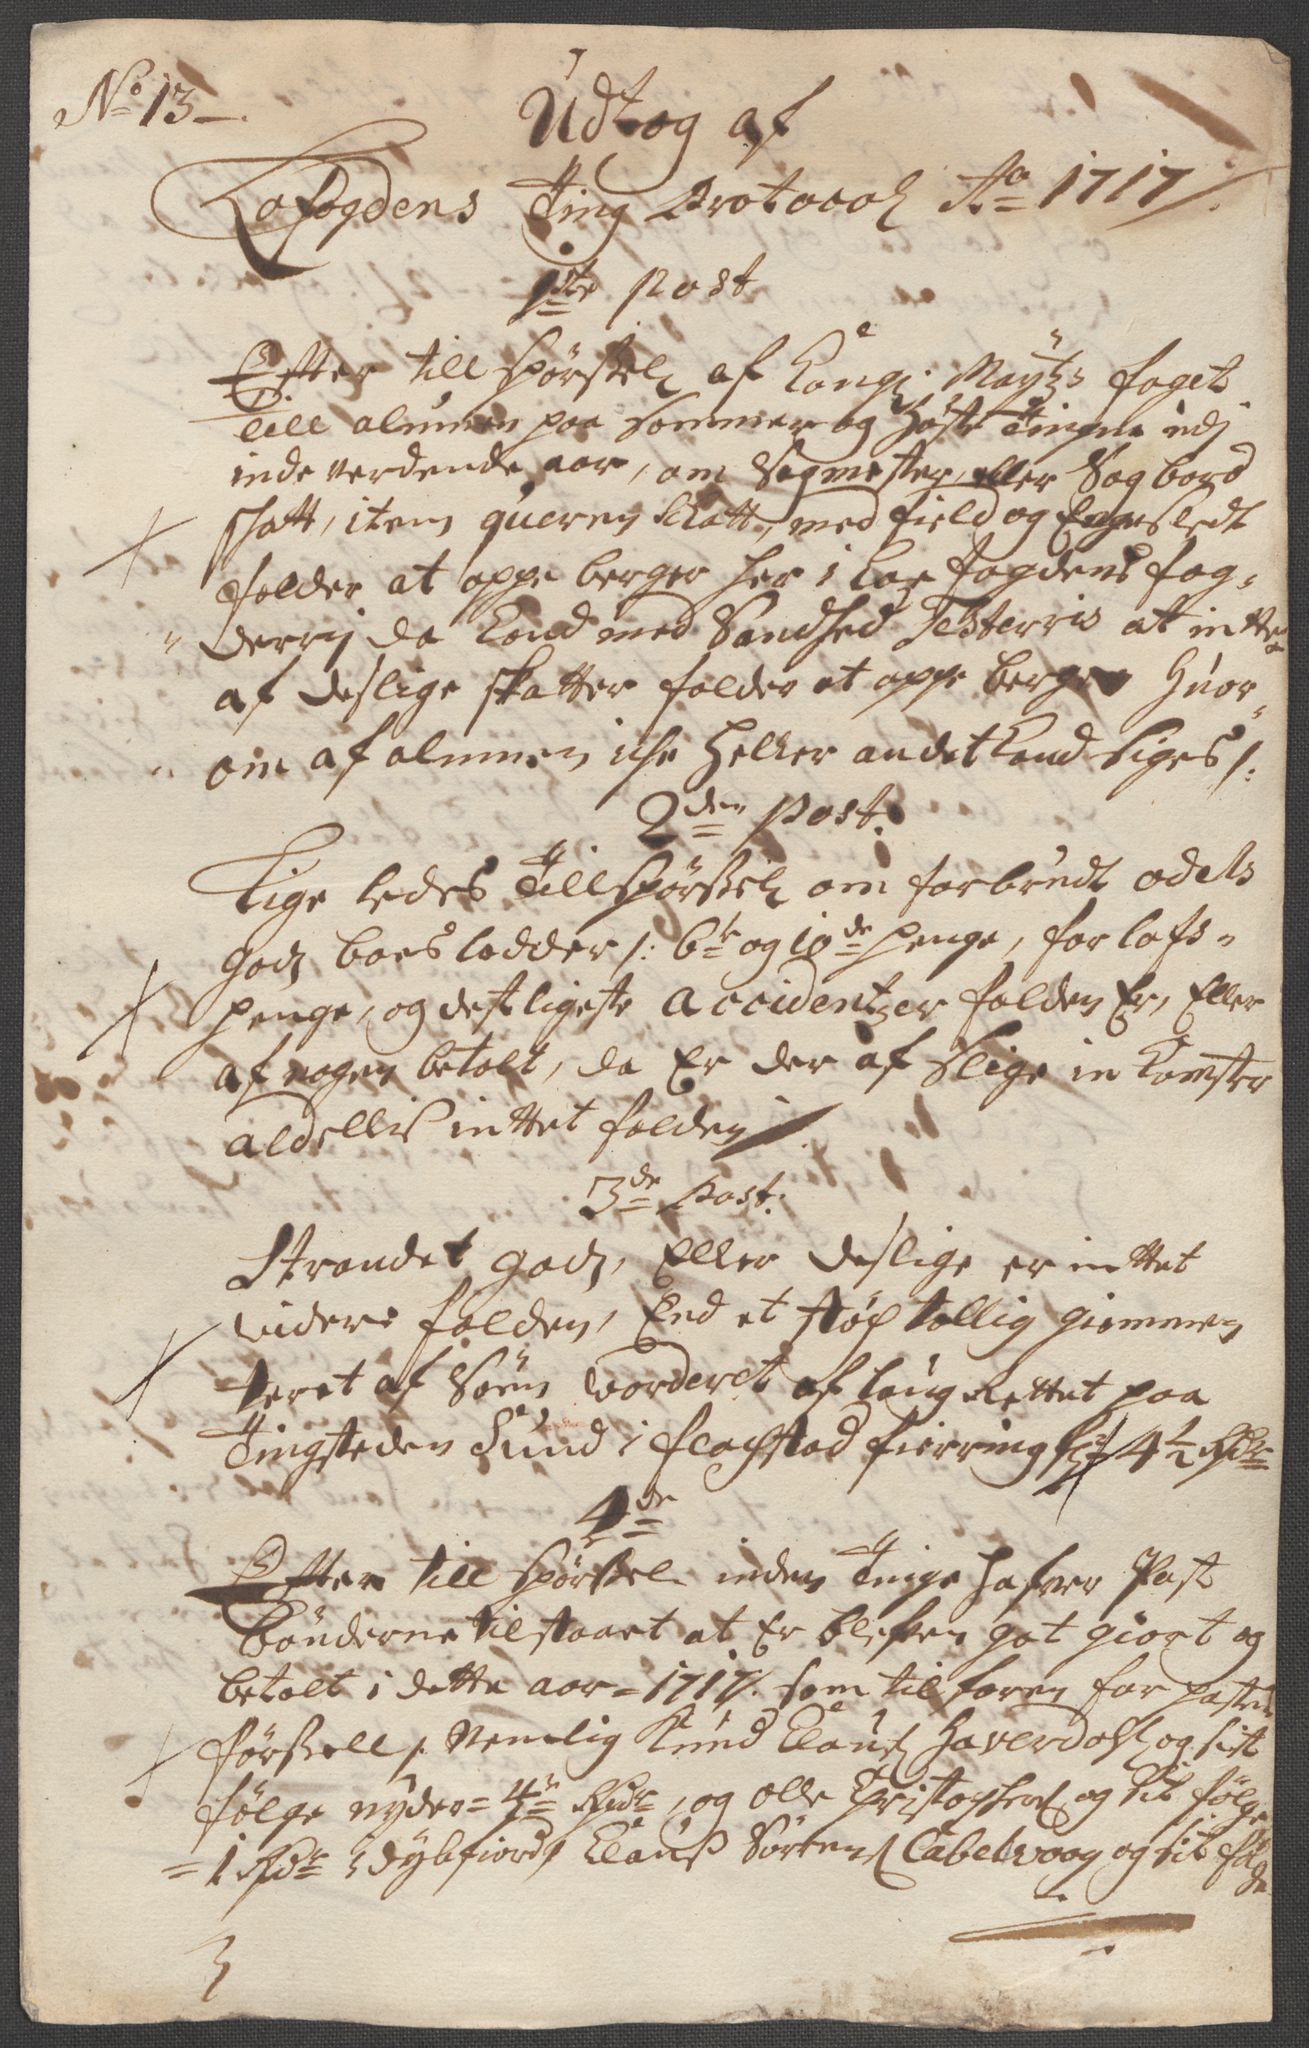 No 13
Udtog af
Lofogdens Ting Protocol Ao 1717
1ste Post
Efter till spørsel af Kongl: Maytz foget
till almuen paa Sommer og Høste Tingene udj
inde verdende aar, om Sagmester, eller Sagbord
skatt, item queren Skatt, med field og Engesledt
falder at oppe berger her i Lofogdens fog-
derrij da kand med Sandhed Testerris at inttet
af deslige skatter falder at oppe berge Huor-
om af almuen iche heller andet kand siges /:
2den Post.
Lige ledes Tillspørsel om forbrudt odels
godz boeslodder /: 6te og 10de penge, forlofs-
penge, og dessligeste accidentzer falden Er, Eller
af nogen betalt, da Er der af slige inkomster
aldellis inttet falden
3de Post.
Strandet godz, Eller deslige er inttet
videre falden, End et støche tollig giennem
teret af Søen vorderet af laugRettet paa
Tingsteden Sund i flachstad fierring for 4½ Rdr
4de
Efter till spørsel inden Tinge hafver Post
bønderne tilstaaet at Er blefven got giort og
betalt i dette aar 1717. som tilforen for posten
førsell /. Nemlig Knud Clausz Haverdahl og sit
følge nyder = 4re Rdr, og Olle Christophers og sit følge
= 1 Rdr i dybfiord, Clauss Sørens Cabelvoog og sit følge